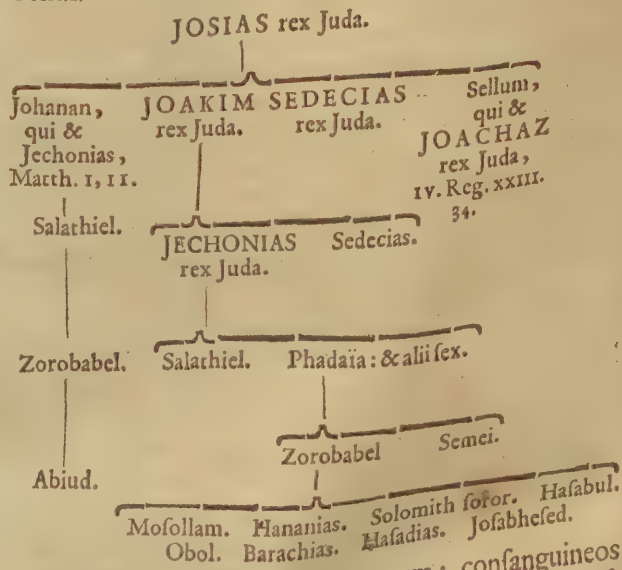 JOSIAS rex Juda.
Johanan,
qui &
Jechonias,
Matth. I, II.
JOAKIM
rex Juda.
SEDECIAS
rex Juda.
Sellum,
qui &
JOACHAZ
rex Juda,
IV. Reg. XXIII.
34.
Salathiel.
JECHONIAS
rex Juda.
Sedecias.
Zorobabel.
Salathiel.
Phadaïa: & alii ſex.
Abiud.
Zorobabel
Semei.
Moſollam. Hananias. Solomith ſoror. Haſabul.
Obol. Barachias. Haſadias. Joſabheſed.
conſanguineos